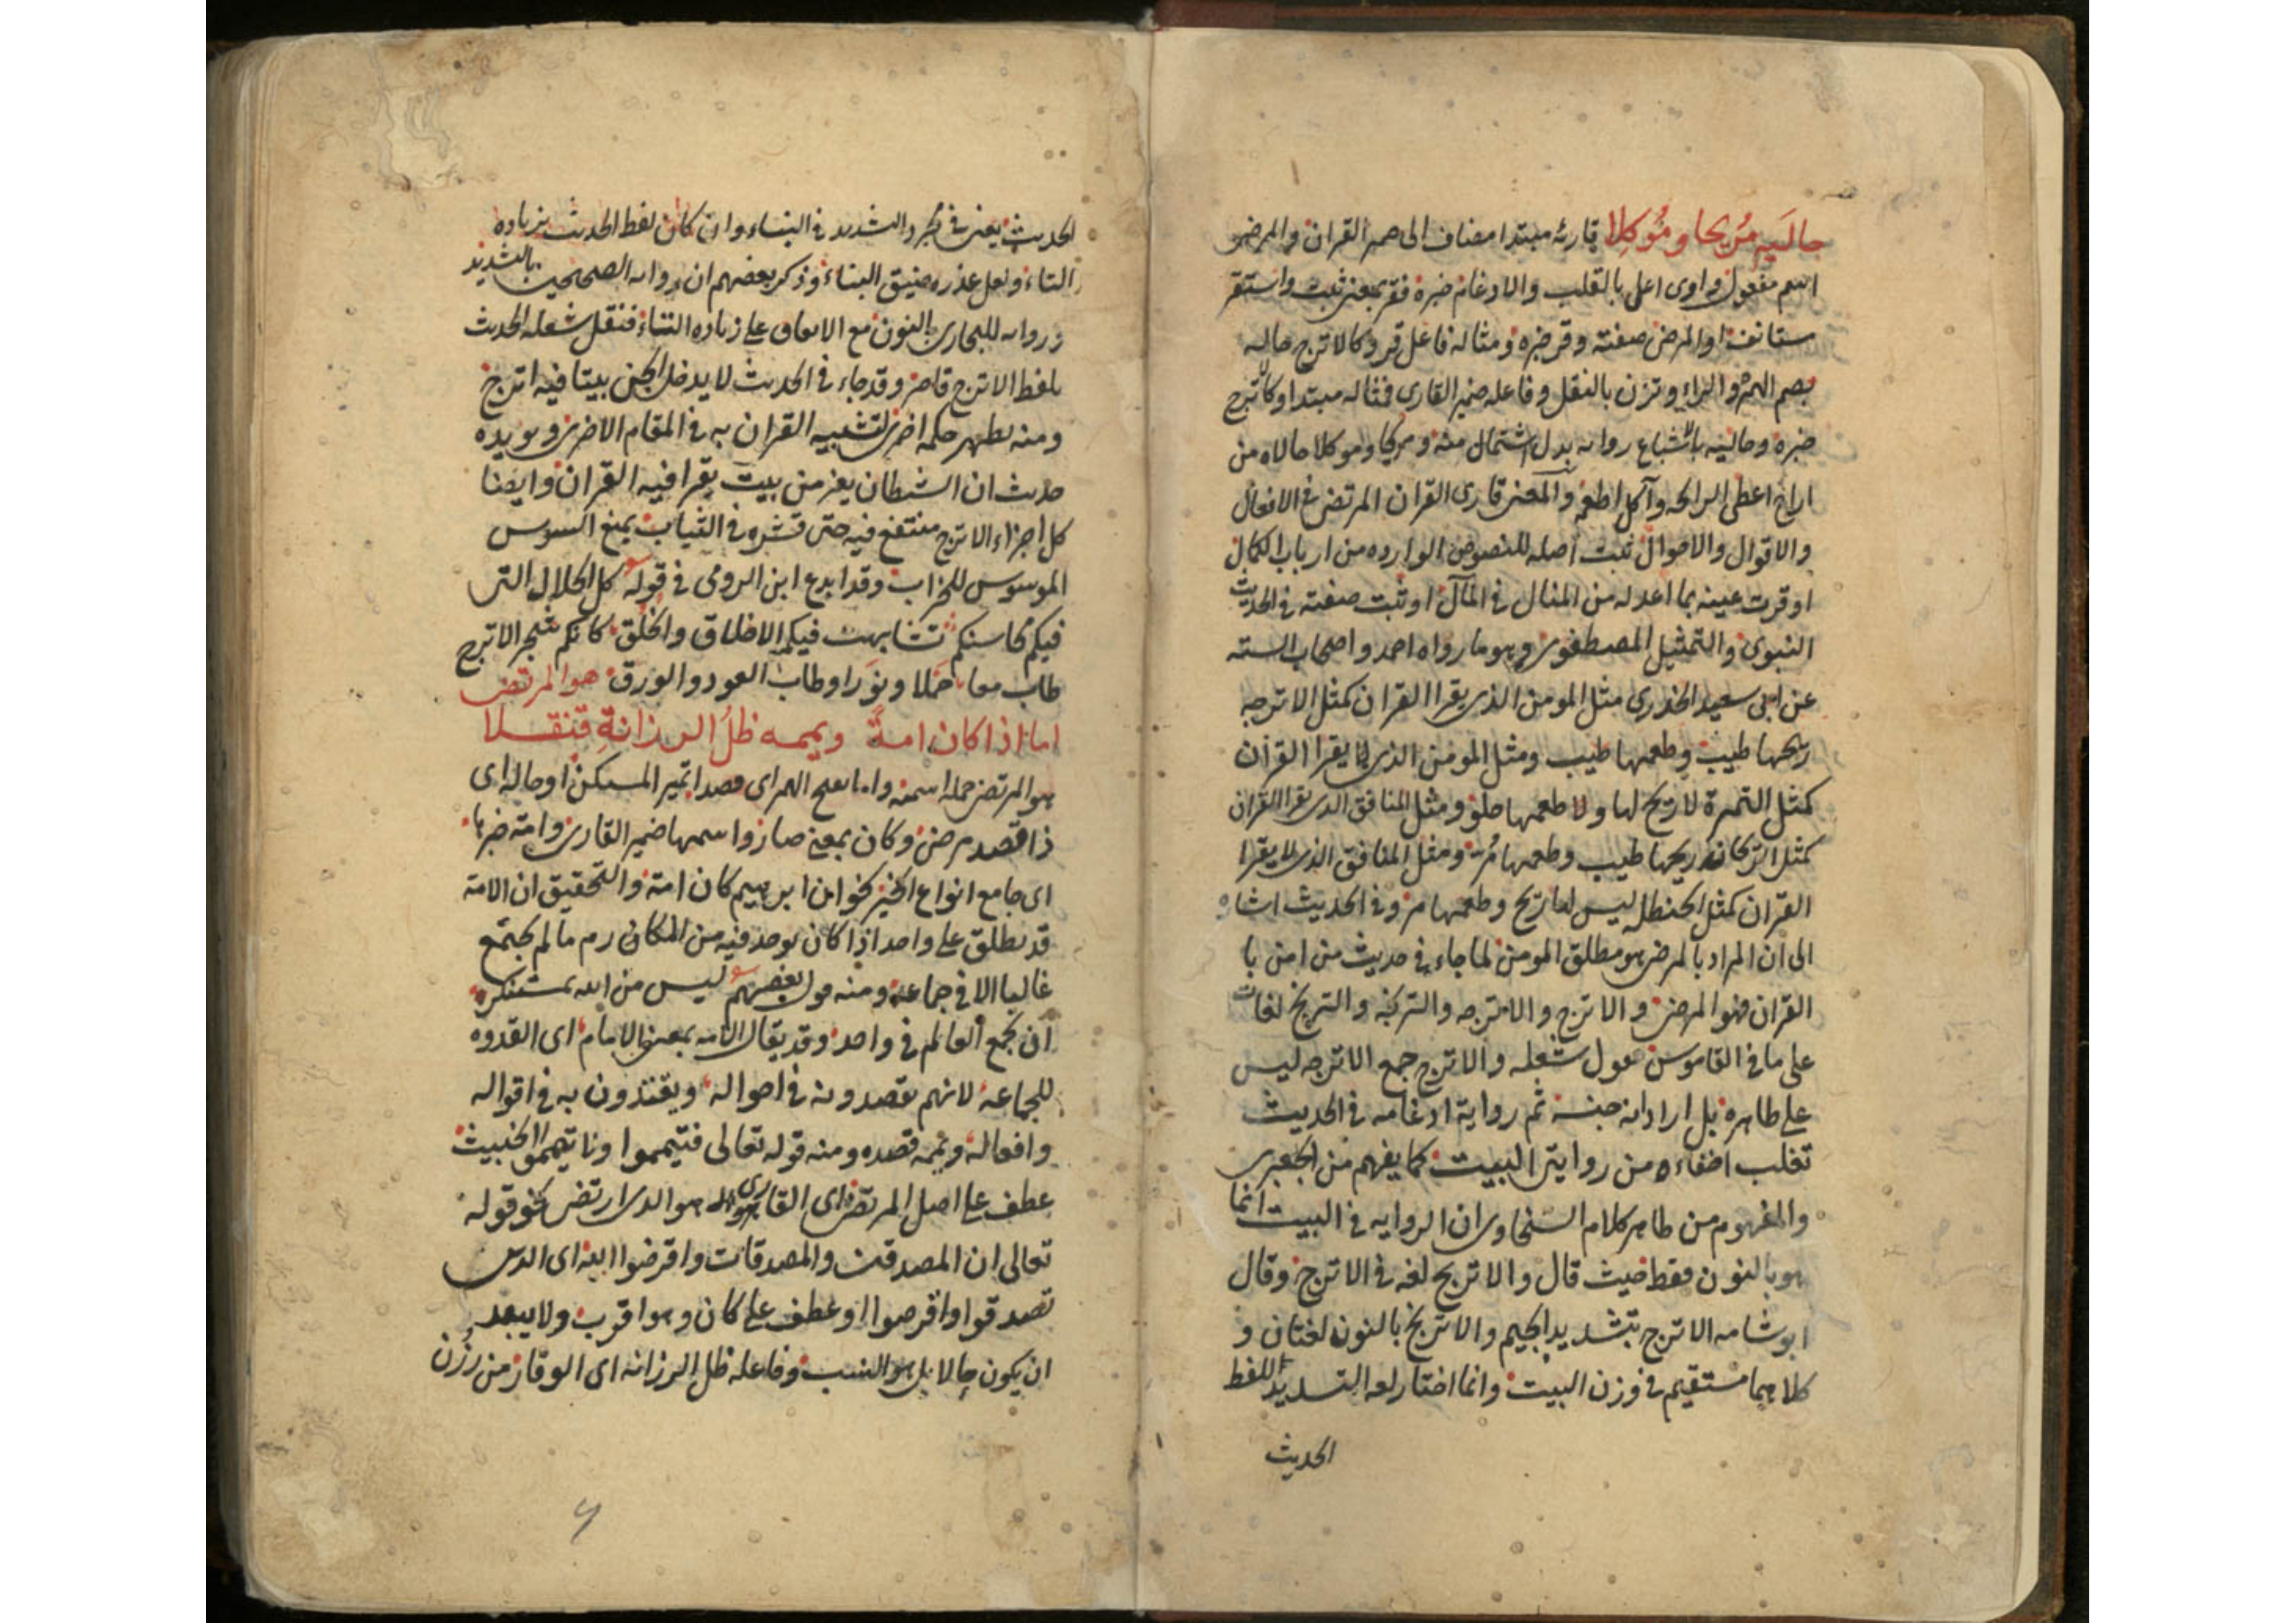 حاليه مُريحا ومُوكِلا قارئه مبتدا مضاف الى ضمير القران والمرضي
اسم مفعول واوى اعل بالقلب والادغام خبره فقر بمعنى ثبت واستقر
ستانفة او المرضي صفته وقر خبره ومثاله فاعل قر وكالاترج حاليه
بضم الهمزة والراء وتزن بالنقل وفاعله ضمير القارى فمثاله مبتدا وكالاترج
خبره وحاليه بالاشباع روايه بدل اشتمال منه ومريحا وموكلا حالاه من
اراح اعطى الرائحه وآكل اطعم والمعنى قارى القران المرتضى في الافعال
والاقوال والاحوال ثبت اصله للنصوص الوارده من ارباب الكمال
او قرت عينه بما اعد له من المنال في المآل او ثبت صفته في الحديث
النبوى والتمثيل المصطفوى وهو ما رواه احمد واصحاب السته
عن ابى سعيد الخدرى مثل المومن الذى يقرا القران كمثل الاترجه
ريحها طيب وطعمها طيب ومثل المومن الذى لا يقرا القران
كمثل التمرة لا ريح لها ولا طعمها حلو ومثل المنافق الذى يقرا القران
كمثل الريحانه ريحها طيب وطعمها مُر ومثل المنافق الذى لا يقرا
القران كمثل الحنطل ليس لها ريح وطعمها مر وفى الحديث اشاره
الى ان المراد بالمرضي هو مطلق المومن لما جاء في حديث من امن با
القران فهو المرضي والاترج والاترجه والترنجه والترنج لغات
على ما في القاموس فقول شعله والاترج جمع الاترجه ليس
على ظاهره بل اراد انه جنسه ثم رواية ادغامه في الحديث
تغلب اخفاءه من روايتى البيت كما يفهم من الجعبرى
والمفهوم من ظاهر كلام السخاوى ان الروايه في البيت انما
هو بالنون فقط حيث قال والاترنج لغه في الاترج وقال
ابو شامه الاترج بتشديد الجيم والاترنج بالنون لغتان و
كلاهما مستقيم في وزن البيت وانما اختار لغه التشديد للفظ
الحديث
الحديث يعنى في مجرد التشديد في البناء وان كان لفظ الحديث بزياده
التاء ولعل عذره ضيق البناء وذكر بعضهم ان روايه الصحيحين بالتشديد
وروايه للبخارى بالنون مع الاتفاق على زياده التاء فنقل شعله الحديث
بلفظ الاترج قاصر وقد جاء في الحديث لا يدخل الجن بيتا فيه اترج
ومنه يظهر حكمه اخرى لتشبيه القران به في المقام الاخرى ويويده
حديث ان الشيطان يفر من بيت يقرا فيه القران وايضا
كل اجزاء الاترج منتفع فيه حتى قشره في الثياب يمنع السوس
الموسوس للخراب وقد ابدع ابن الرومى في قوله كل الخلال التى
فيكم محاسنكم تشابهت فيكم الاخلاق والخلق كانكم شجر الاترج
طاب معا حملا ونورا وطاب العود والورق هو المرتضى
اما اذا كان امةً ويممه ظلُّ الرزانةِ قنقلا
هو المرتضى جمله اسميه واما بفتح الهمز اى قصدا تميز المستكن او حاله اى
ذا قصد مرضي وكان بمعنى صار واسمها ضمير القارى وامة خبرها
اى جامع انواع الخير نحو ان ابرهيم كان امة والتحقيق ان الامة
قد يطلق على واحد اذا كان يوجد فيه من المكارم ما لم يجتمع
غالبا الا في جماعه ومنه قول بعضهم ليس من الله بمستنكر
ان يجمع العالم في واحد وقد يقال الامه بمعنى الامام اى القدوه
للجماعه لانهم يقصدونه في احواله ويقتدون به في اقواله
وافعاله ويممه قصده ومنه قوله تعالى فتيمموا ولا تيمموا الخبيث
عطف على اصل المرتضى اى القارى هو الذى ارتضى نحو قوله
تعالى ان المصدقين والمصدقات واقرضوا الله اى الذين
تصدقوا واقرضوا او عطف على كان وهو اقرب ولا يبعد
ان يكون حالا بل هو انسب وفاعله ظل الرزانه اى الوقار من رزن